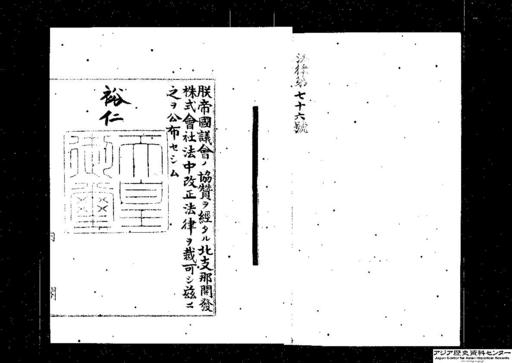 法律第七十六號
朕帝國議會ノ協贊ヲ經タル北支那開發
株式會社法中改正法律ヲ裁可シ茲ニ
之ヲ公布セシム
裕仁
天皇御璽
内閣
アジア歴史資料センター
Japan Center for Asian Historical Records